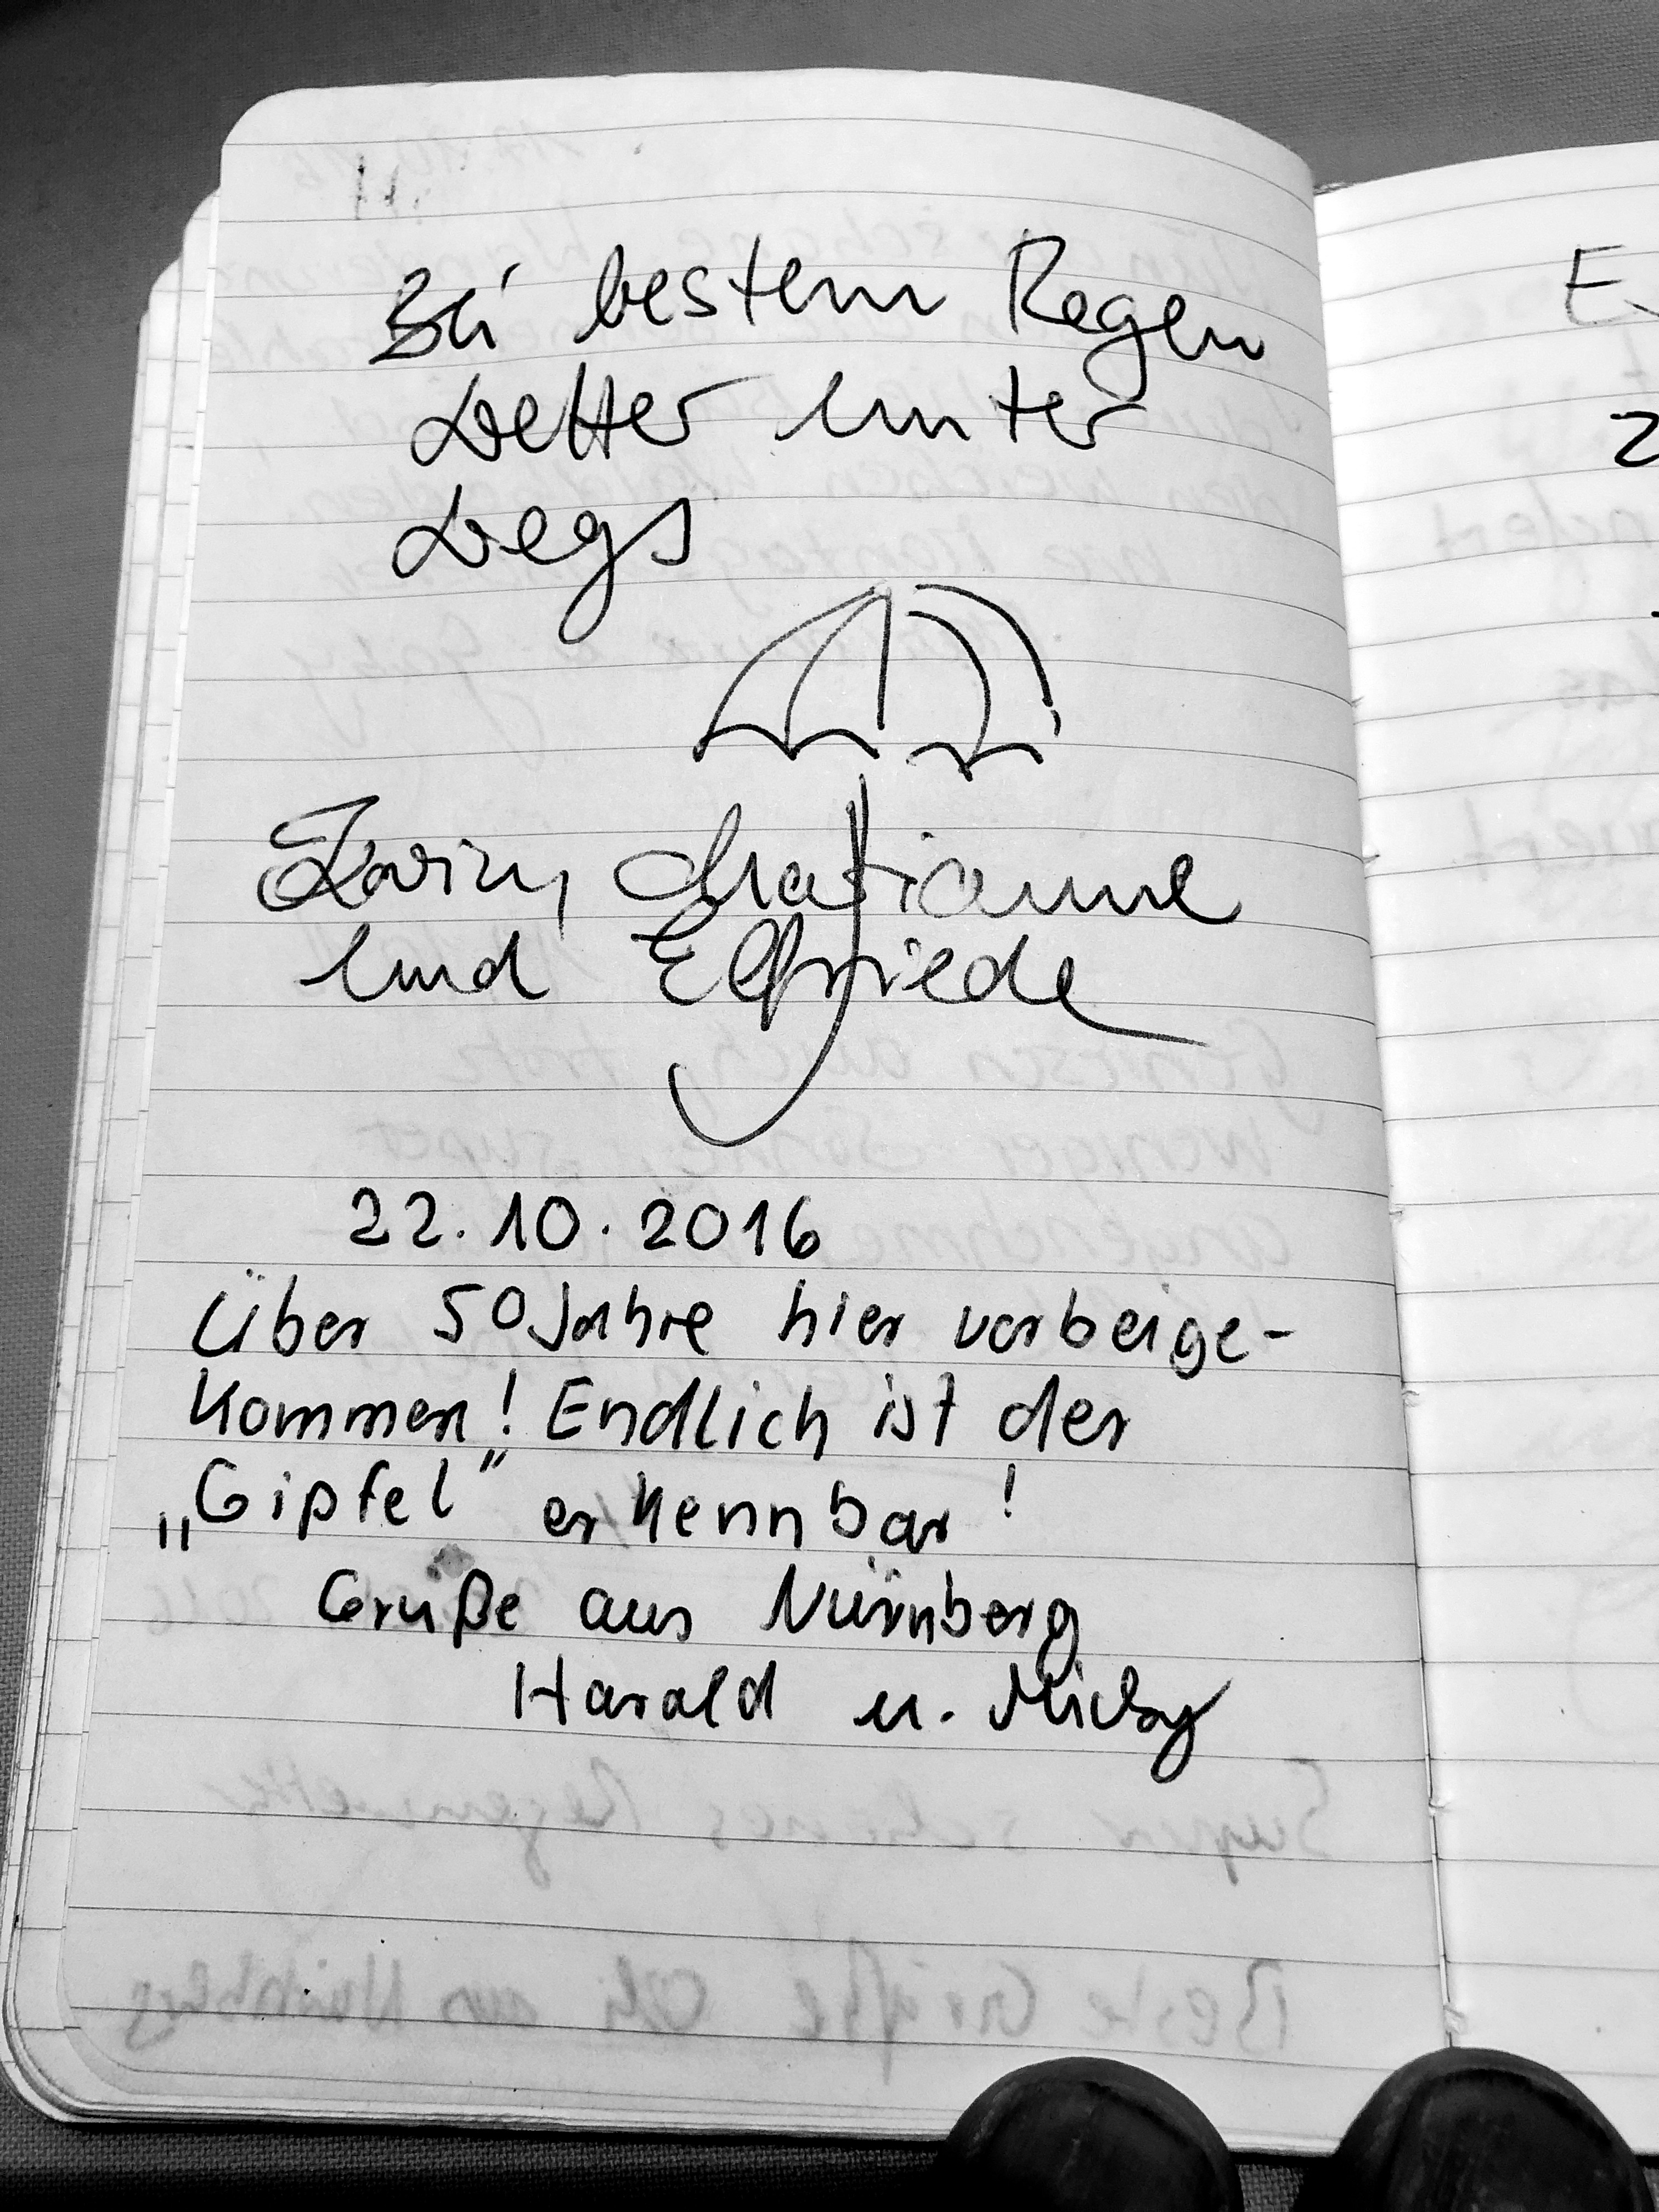 Bei bestem Regen
Wetter unter
Wegs
Karin, Marianne
und Elfriede
22.10.2016
Über 50 Jahre hier vorbeige-
kommen! Endlich ist der
„Gipfel" erkennbar!
Grüße aus Nürnberg
Harald u. Micky